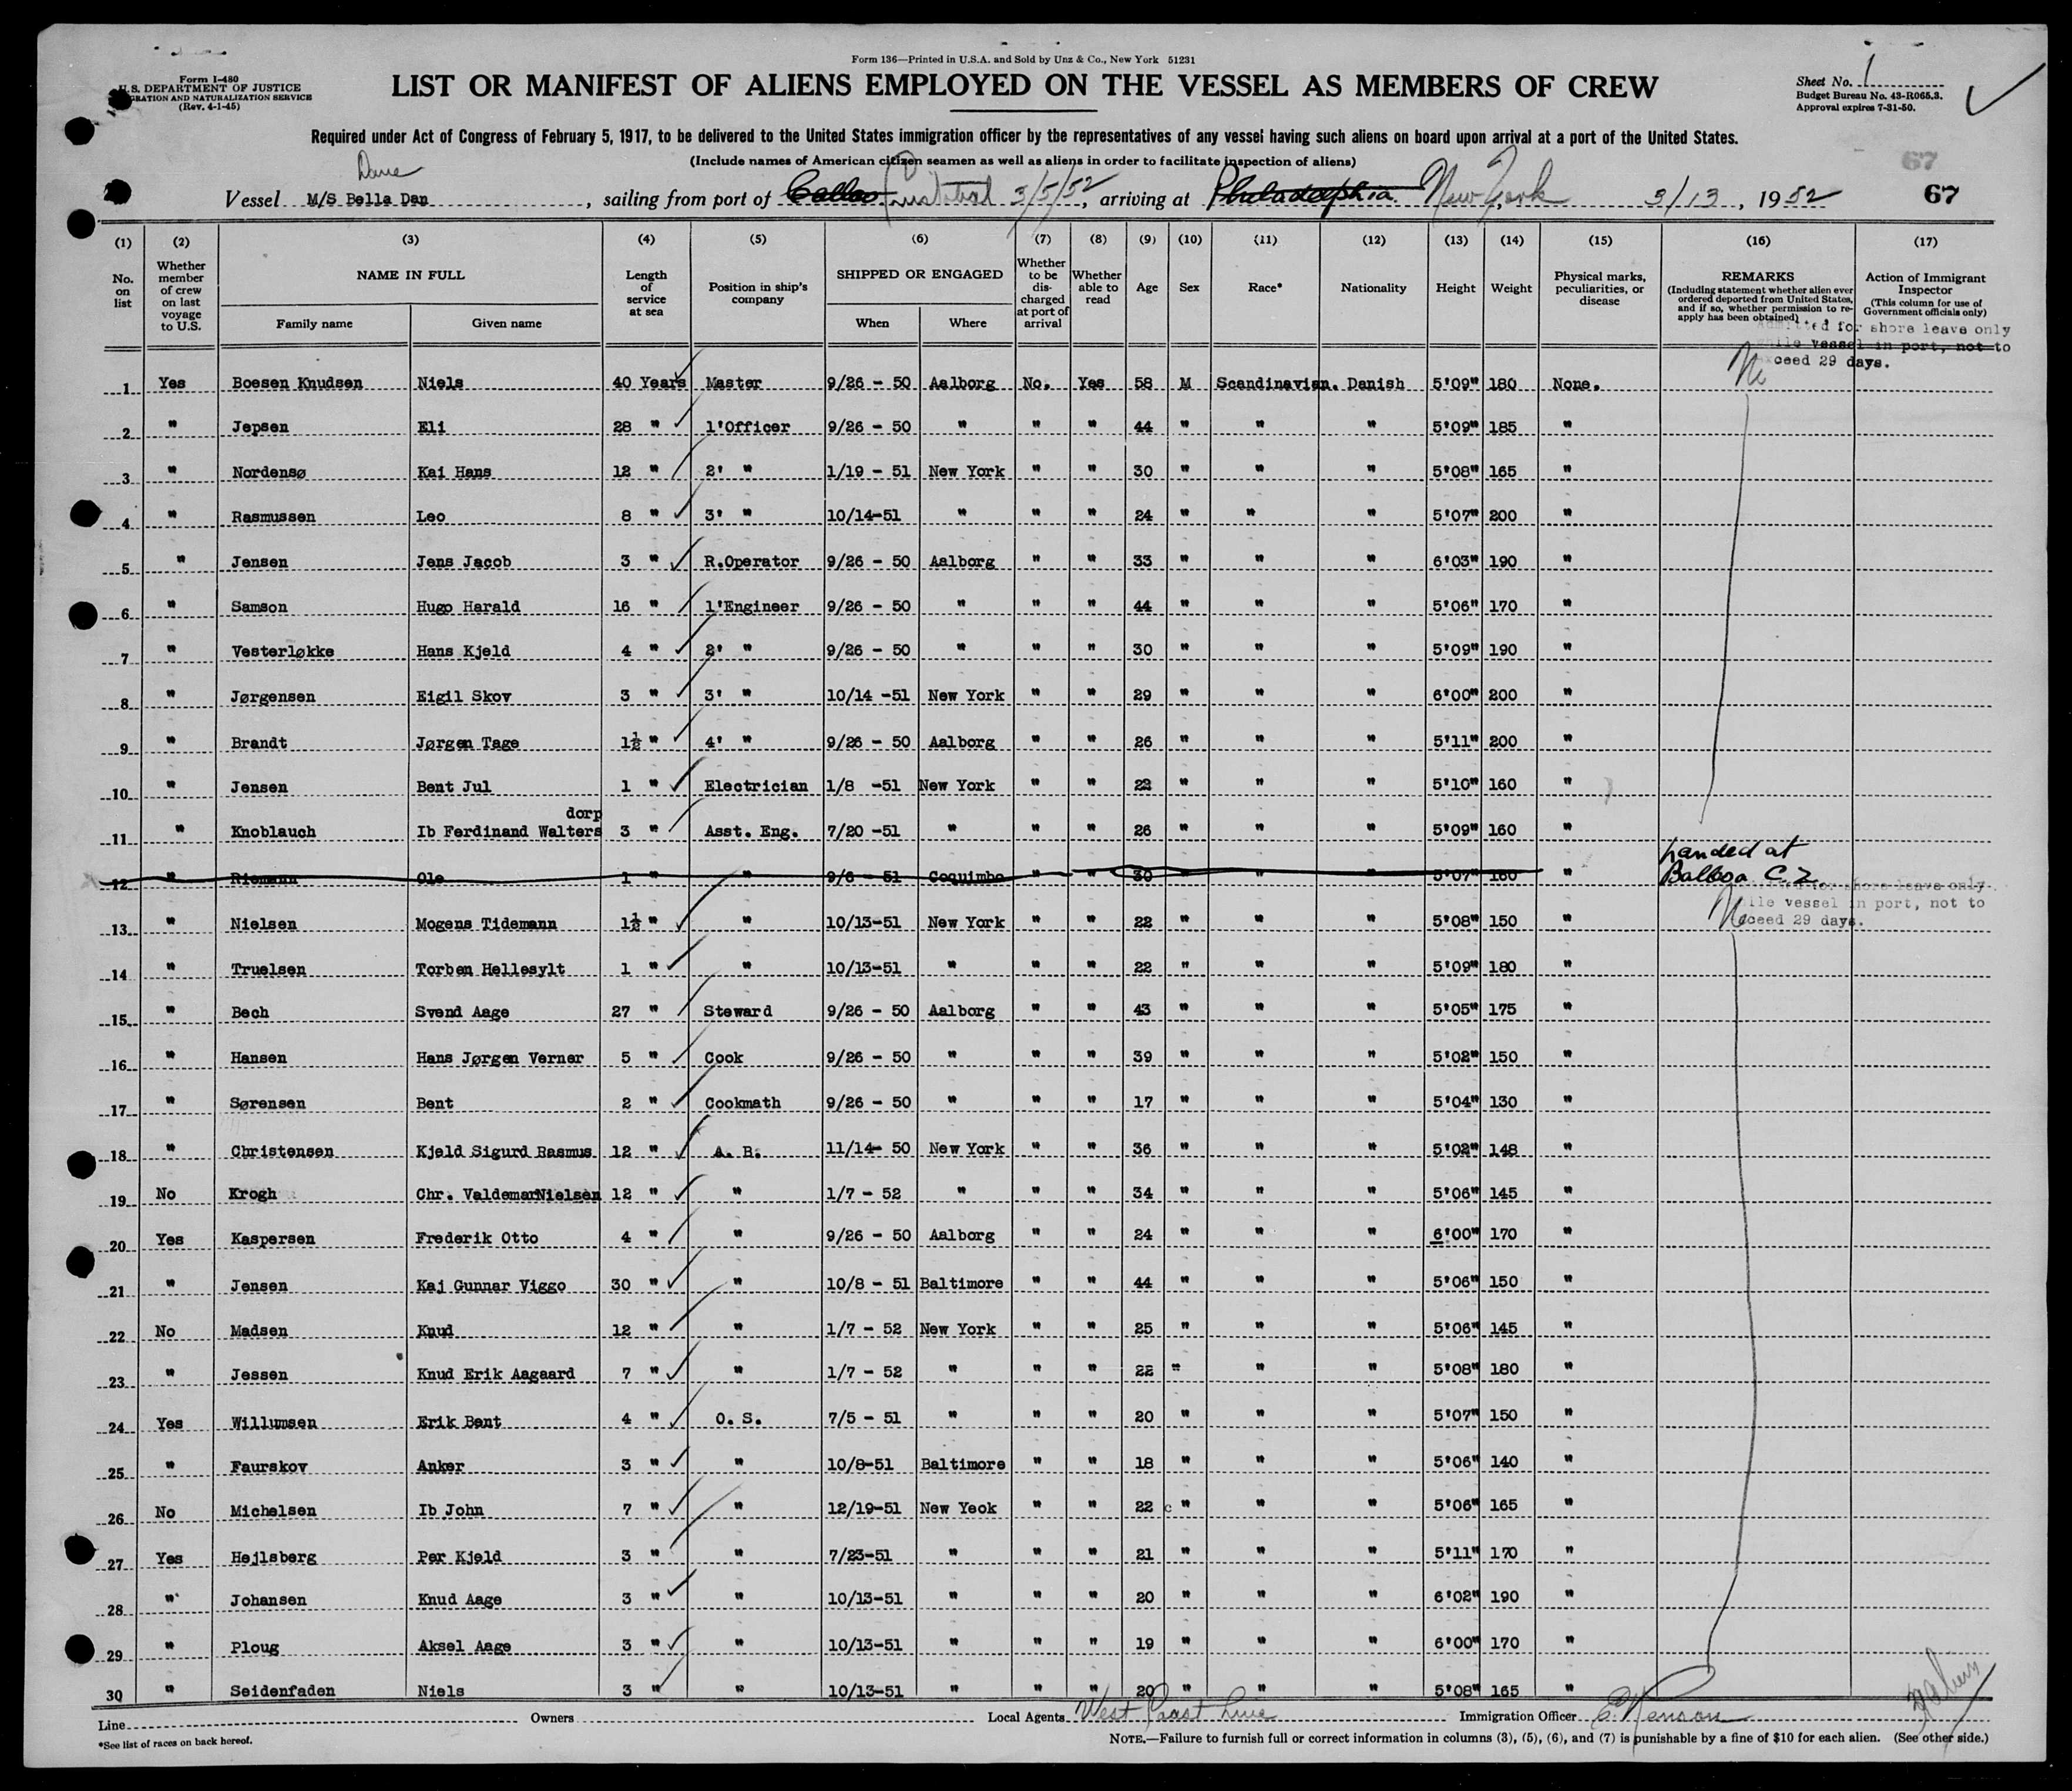 Form 136—Printed in U.S.A. and Sold by Unz & Co., New York 51231
Form I-480
U.S. DEPARTMENT OF JUSTICE
GRATION AND NATURALIZATION SERVICE
(Rev. 4-1-45)
LIST OR MANIFEST OF ALIENS EMPLOYED ON THE VESSEL AS MEMBERS OF CREW
Sheet No. 1
Budget Bureau No. 43-R065.3.
Approval expires 7-31-50.
Required under Act of Congress of February 5, 1917, to be delivered to the United States immigration officer by the representatives of any vessel having such aliens on board upon arrival at a port of the United States.
(Include names of American citizen seamen as well as aliens in order to facilitate inspection of aliens)
67
Dane
Vessel M/S Bella Dan, sailing from port of Callao Cristobal 3/5/52, arriving at Philadelphia New York 3/13, 1952 67
(1) (2) (3) (4) (5) (6) (7) (8) (9) (10) (11) (12) (13) (14) (15) (16) (17)
No. on list
Whether member of crew on last voyage to U.S.
NAME IN FULL
Family name
Given name
Length of service at sea
Position in ship's company
SHIPPED OR ENGAGED
When
Where
Whether to be discharged at port of arrival
Whether able to read
Age
Sex
Race*
Nationality
Height
Weight
Physical marks, peculiarities, or disease
REMARKS
(Including statement whether alien ever ordered deported from United States, and if so, whether permission to reapply has been obtained)
Action of Immigrant Inspector
(This column for use of Government officials only)
Admitted for shore leave only
while vessel in port, not to
exceed 29 days.
1 Yes Boesen Knudsen Niels 40 Years Master 9/26 - 50 Aalborg No. Yes 58 M Scandinavian. Danish 5'09" 180 None.
2 " Jepsen Eli 28 " 1'Officer 9/26 - 50 " " " 44 " " " 5'09" 185 "
3 " Nordensø Kai Hans 12 " 2' " 1/19 - 51 New York " " 30 " " " 5'08" 165 "
4 " Rasmussen Leo 8 " 3' " 10/14-51 " " " 24 " " " 5'07" 200 "
5 " Jensen Jens Jacob 3 " R.Operator 9/26 - 50 Aalborg " " 33 " " " 6'03" 190 "
6 " Samson Hugo Harald 16 " 1'Engineer 9/26 - 50 " " " 44 " " " 5'06" 170 "
7 " Vesterløkke Hans Kjeld 4 " 2' " 9/26 - 50 " " " 30 " " " 5'09" 190 "
8 " Jørgensen Eigil Skov 3 " 3' " 10/14 -51 New York " " 29 " " " 6'00" 200 "
9 " Brandt Jørgen Tage 1½ " 4' " 9/26 - 50 Aalborg " " 26 " " " 5'11" 200 "
10 " Jensen Bent Jul 1 " Electrician 1/8 -51 New York " " 22 " " " 5'10" 160 "
dorp
11 " Knoblauch Ib Ferdinand Walters 3 " Asst. Eng. 7/20 -51 " " " 26 " " " 5'09" 160 "
12 " Riemann Ole 1 " " 9/6 - 51 Coquimbo " " 30 " " " 5'07" 160 " Landed at
Balboa C.Z.
Admitted for shore leave only
while vessel in port, not to
exceed 29 days.
13 " Nielsen Mogens Tidemann 1½ " " 10/13-51 New York " " 22 " " " 5'08" 150 "
14 " Truelsen Torben Hellesylt 1 " " 10/13-51 " " " 22 " " " 5'09" 180 "
15 " Bech Svend Aage 27 " Steward 9/26 - 50 Aalborg " " 43 " " " 5'05" 175 "
16 " Hansen Hans Jørgen Verner 5 " Cook 9/26 - 50 " " " 39 " " " 5'02" 150 "
17 " Sørensen Bent 2 " Cookmath 9/26 - 50 " " " 17 " " " 5'04" 130 "
18 " Christensen Kjeld Sigurd Rasmus 12 " A. B. 11/14- 50 New York " " 36 " " " 5'02" 148 "
19 No Krogh Chr. ValdemarNielsen 12 " " 1/7 - 52 " " " 34 " " " 5'06" 145 "
20 Yes Kaspersen Frederik Otto 4 " " 9/26 - 50 Aalborg " " 24 " " " 6'00" 170 "
21 " Jensen Kaj Gunnar Viggo 30 " " 10/8 - 51 Baltimore " " 44 " " " 5'06" 150 "
22 No Madsen Knud 12 " " 1/7 - 52 New York " " 25 " " " 5'06" 145 "
23 " Jessen Knud Erik Aagaard 7 " " 1/7 - 52 " " " 22 " " " 5'08" 180 "
24 Yes Willumsen Erik Bent 4 " O. S. 7/5 - 51 " " " 20 " " " 5'07" 150 "
25 " Faurskov Anker 3 " " 10/8-51 Baltimore " " 18 " " " 5'06" 140 "
26 No Michelsen Ib John 7 " " 12/19-51 New Yeok " " 22 c " " " 5'06" 165 "
27 Yes Hejlsberg Per Kjeld 3 " " 7/23-51 " " " 21 " " " 5'11" 170 "
28 " Johansen Knud Aage 3 " " 10/13-51 " " " 20 " " " 6'02" 190 "
29 " Ploug Aksel Aage 3 " " 10/13-51 " " " 19 " " " 6'00" 170 "
30 " Seidenfaden Niels 3 " " 10/13-51 " " " 20 " " " 5'08" 165 "
Line Owners Local Agents West Coast Line Immigration Officer
*See list of races on back hereof.
NOTE.—Failure to furnish full or correct information in columns (3), (5), (6), and (7) is punishable by a fine of $10 for each alien. (See other side.)